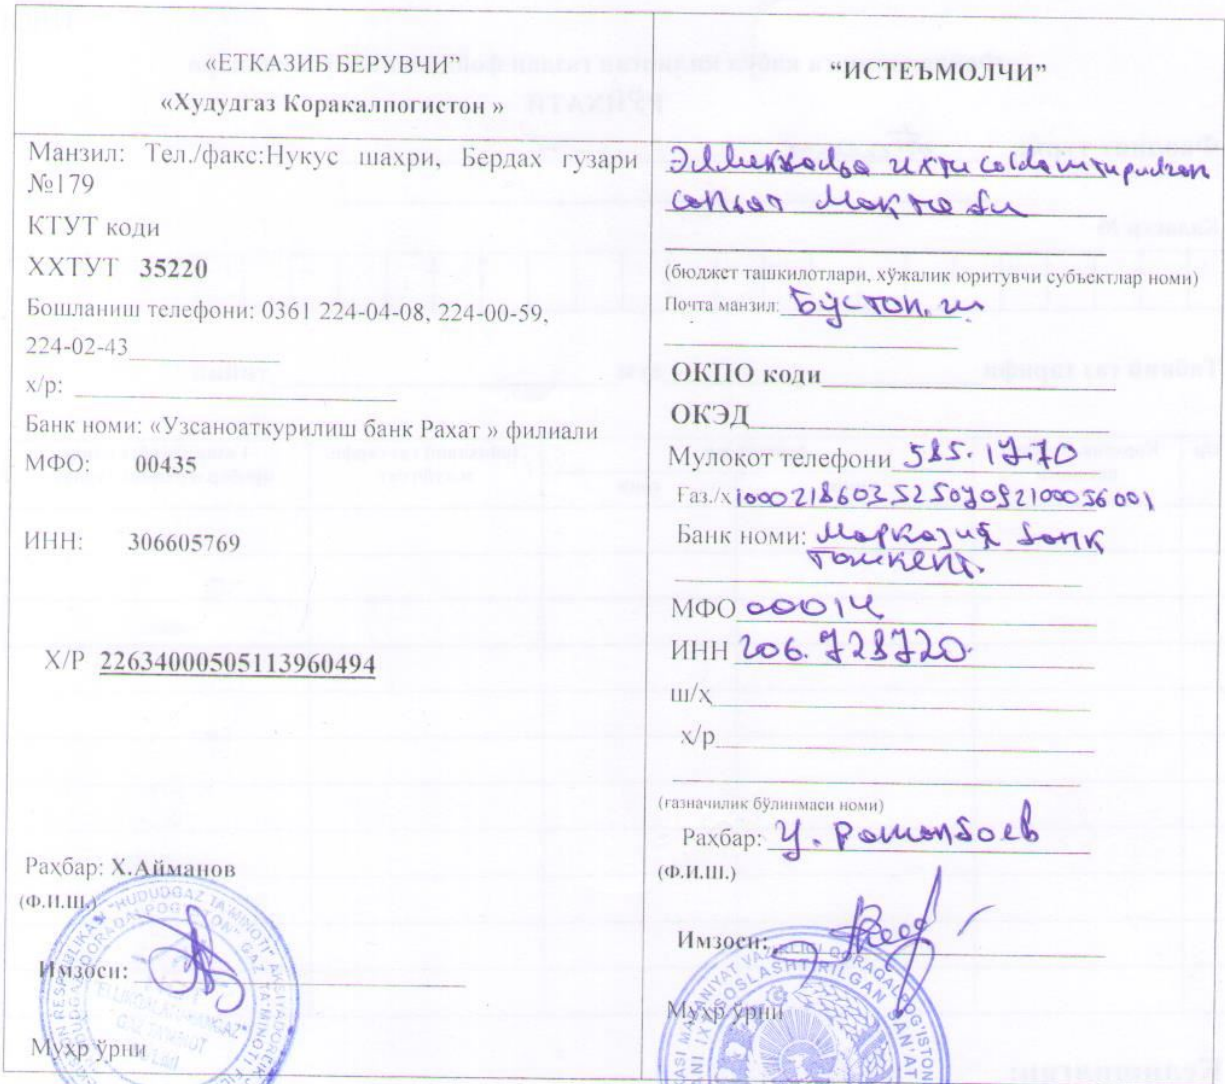 «ЕТКАЗИБ БЕРУВЧИ”
«Худудгаз Коракалпогистон »
Манзил: Тел./факс:Нукус шахри, Бердах гузари
№179
КТУТ коди
ХХТУТ 35220
Бошланиш телефони: 0361 224-04-08, 224-00-59,
224-02-43
х/р:
Банк номи: «Узсаноаткурилиш банк Рахат » филиали
МФО: 00435
ИНН: 306605769
Х/Р 22634000505113960494
Раҳбар: Х.Айманов
(Ф.И.Ш.)
Имзоси:
Муҳр ўрни
“ИСТЕЪМОЛЧИ”
Элликқалъа ихтисослаштирилган
санъат мактаби
(бюджет ташкилотлари, хўжалик юритувчи субъектлар номи)
Почта манзил: Бўстон. ш
ОКПО коди
ОКЭД
Мулоқот телефони 585-17-70
Ғаз./х 100021860352507092100056001
Банк номи: Марказий банк
Тошкент.
МФО 00014
ИНН 206.728720
ш/ҳ
х/р
(ғазначилик бўлинмаси номи)
Раҳбар: У. Рамонбоев
(Ф.И.Ш.)
Имзоси:
Муҳр ўрни